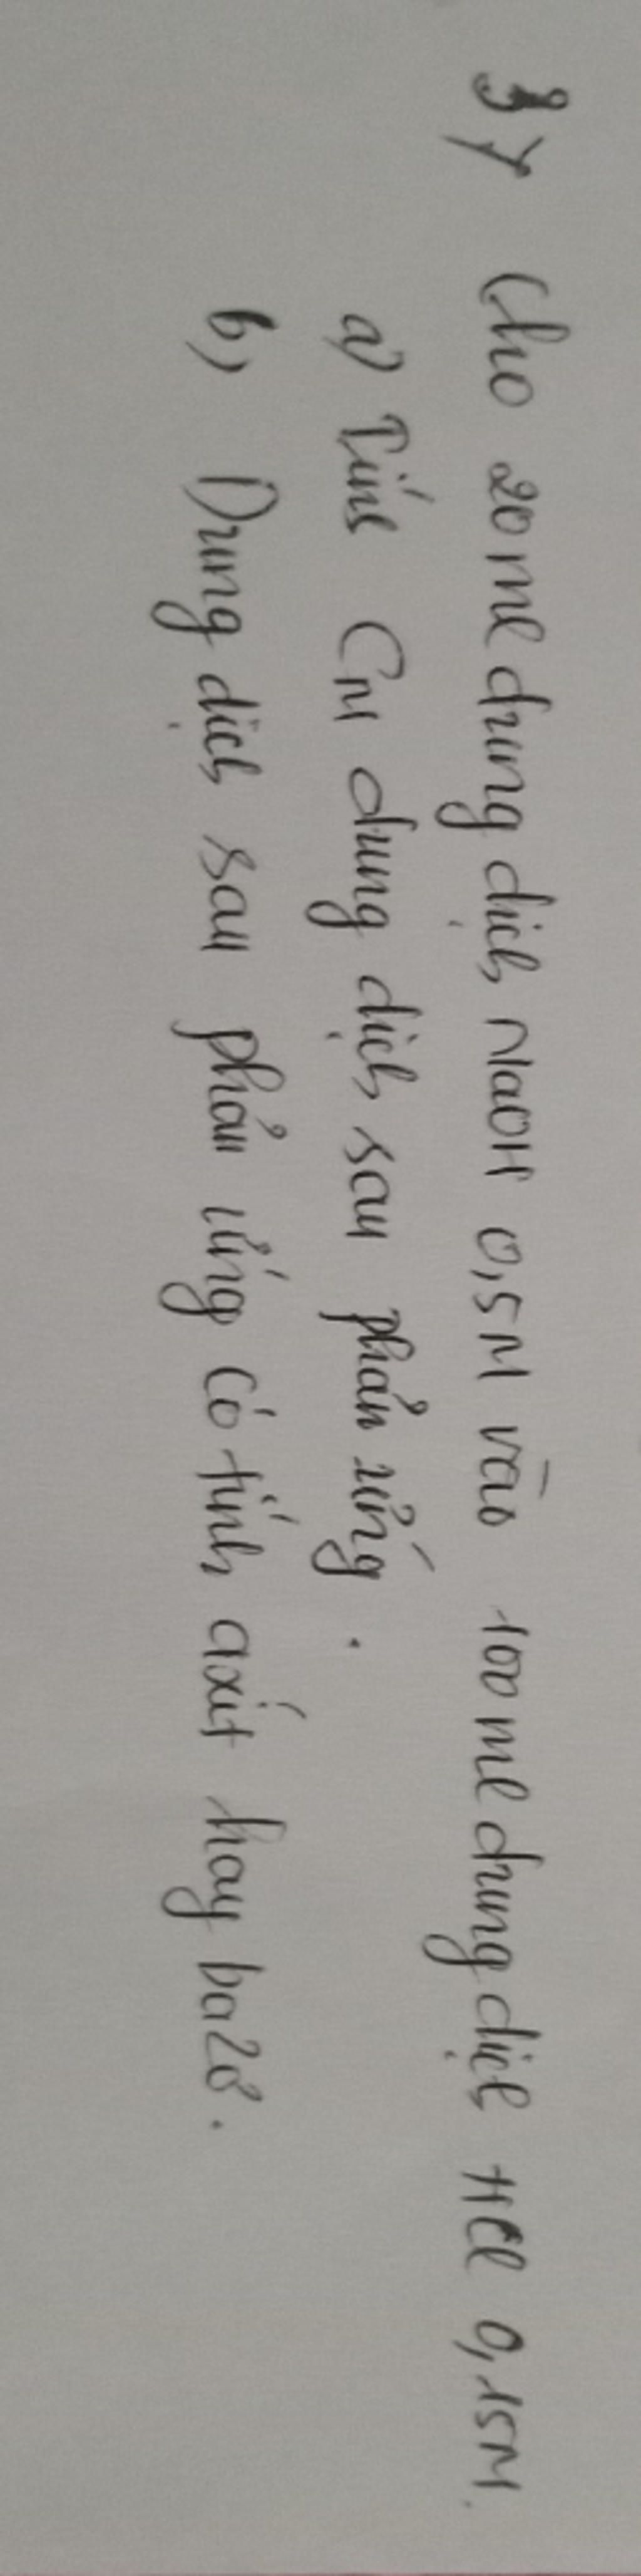 3/ Cho 20ml dung dịch NaOH 0,5M vào 100ml dung dịch HCl 0,15M.
a) Tính CM dung dịch sau phản ứng.
b) Dung dịch sau phản ứng có tính axit hay bazơ.